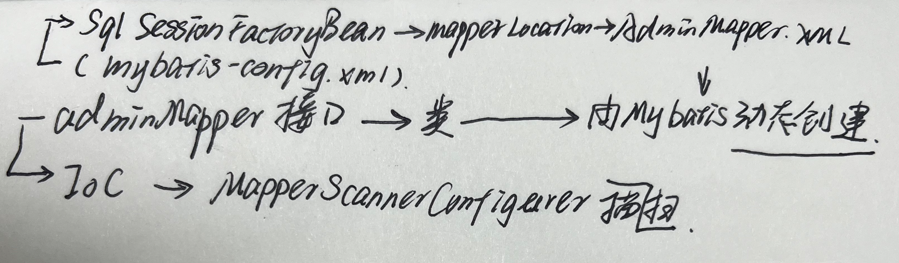 Sql SessionFactoryBean →mapperLocation→AdminMapper.xml
(mybatis-config.xml)
adminMapper 接口 → 类 → 由Mybatis动态创建.
IoC → MapperScannerConfigurer 扫描.